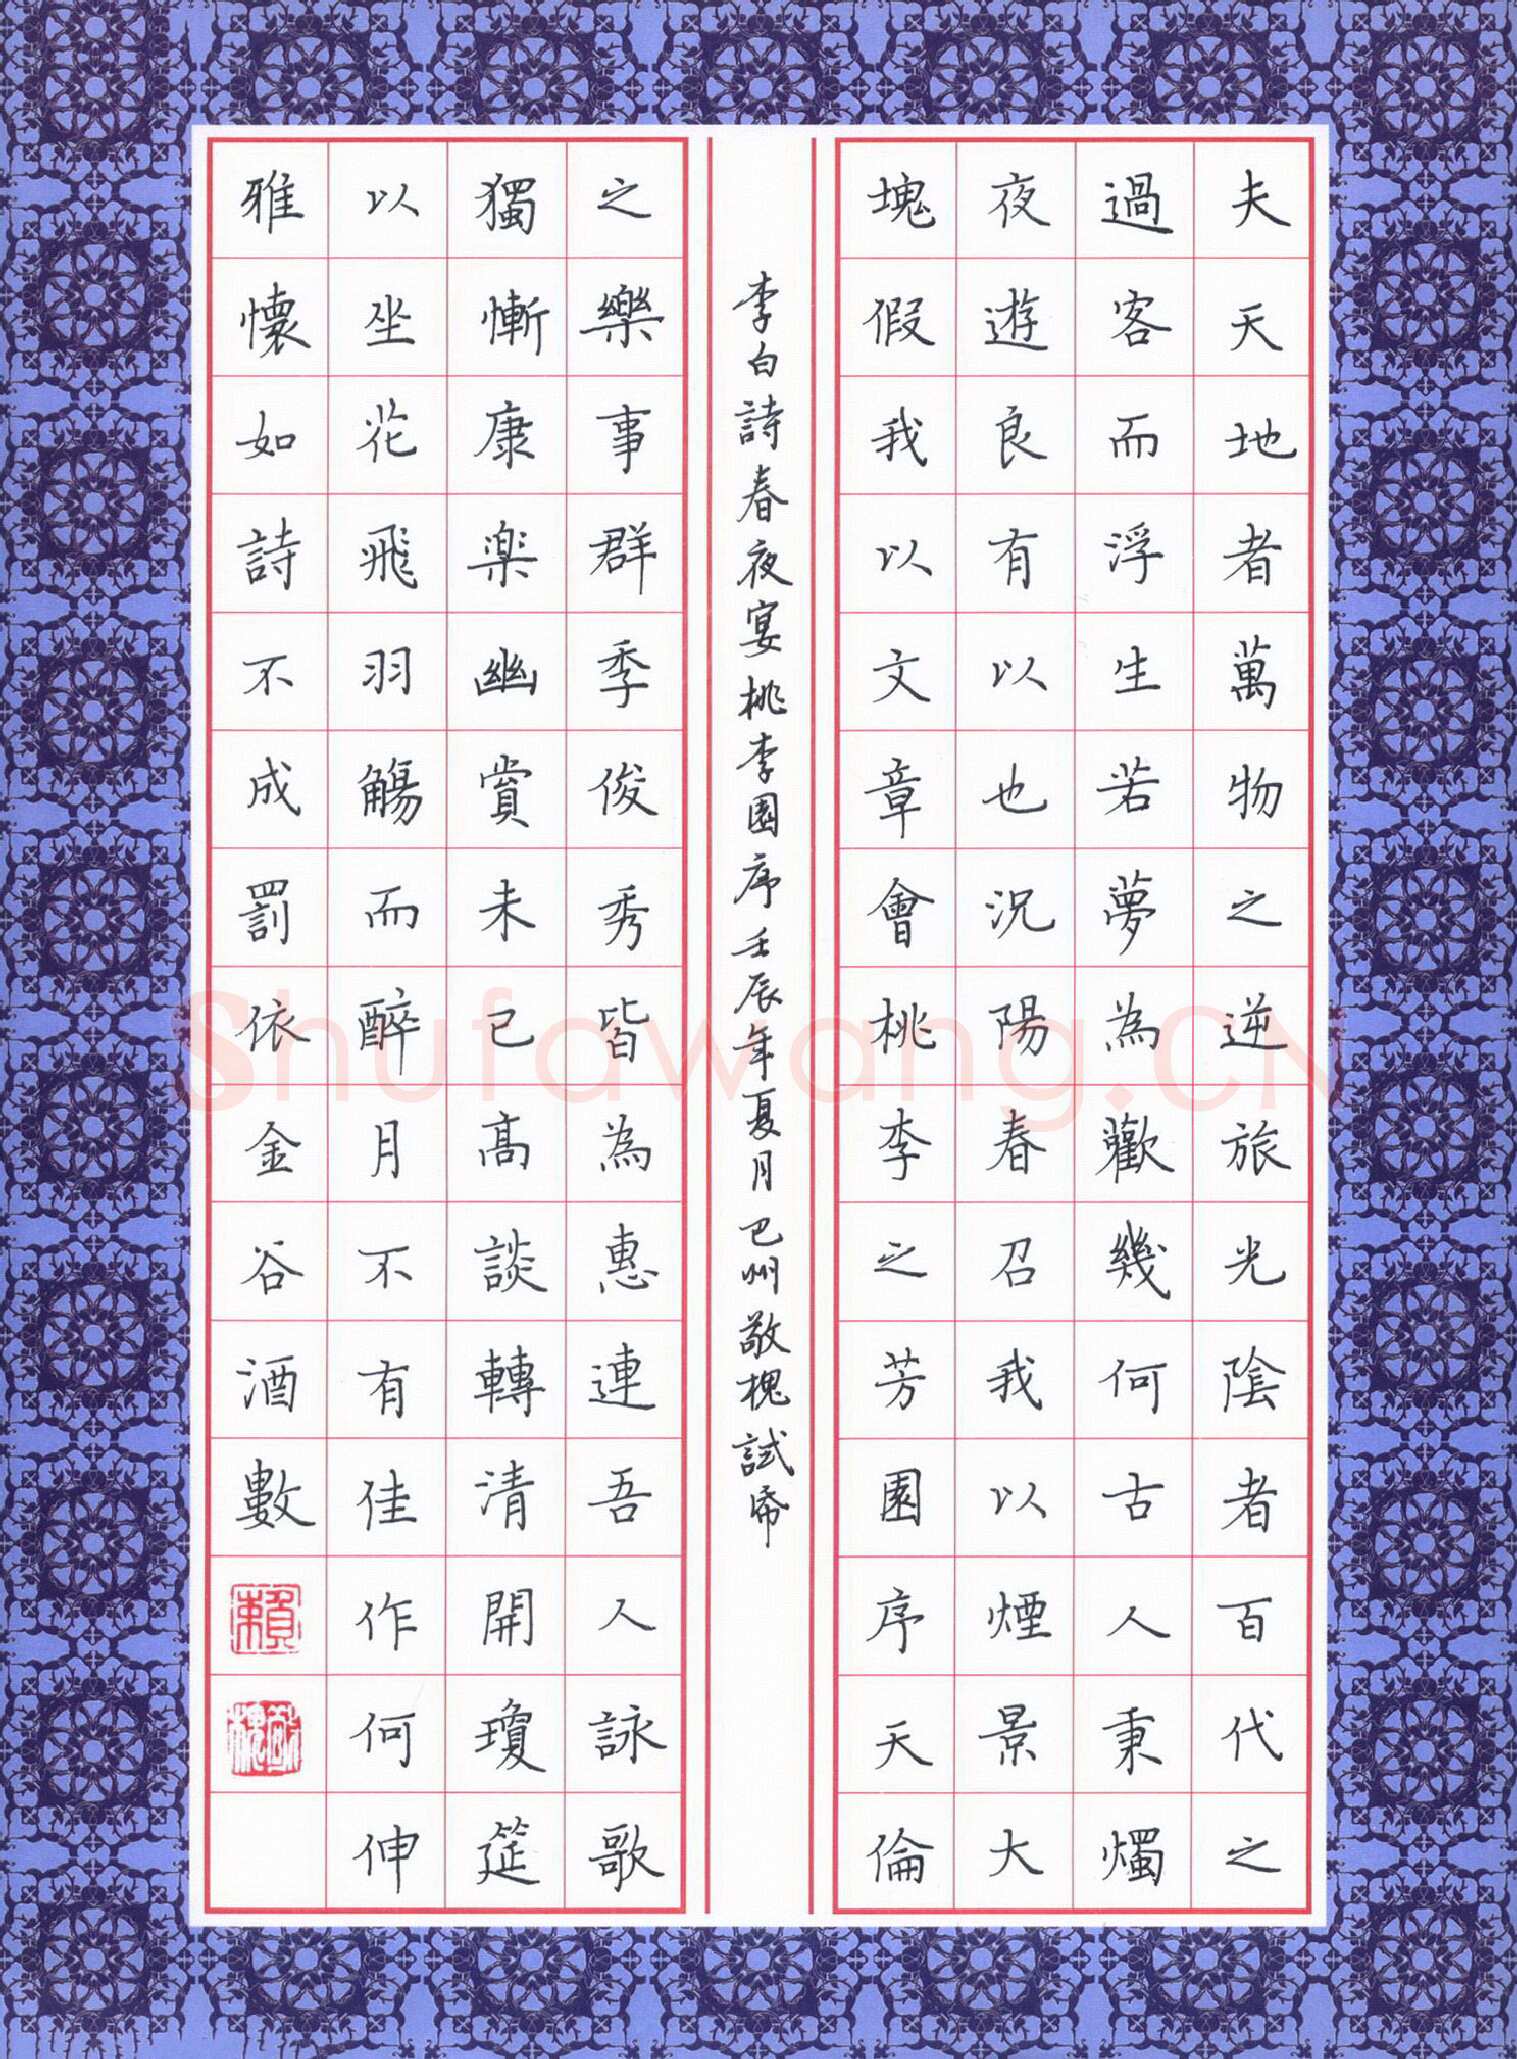 夫天地者萬物之逆旅光陰者百代之
過客而浮生若夢為歡幾何古人秉燭
夜遊良有以也況陽春召我以煙景大
塊假我以文章會桃李之芳園序天倫
李白詩春夜宴桃李園序壬辰年夏月巴州敬槐試帋
之樂事群季俊秀皆為惠連吾人詠歌
獨慚康楽幽賞未已高談轉清開瓊筵
以坐花飛羽觴而醉月不有佳作何伸
雅懷如詩不成罰依金谷酒數
賴
敬槐
Shufawang.CN